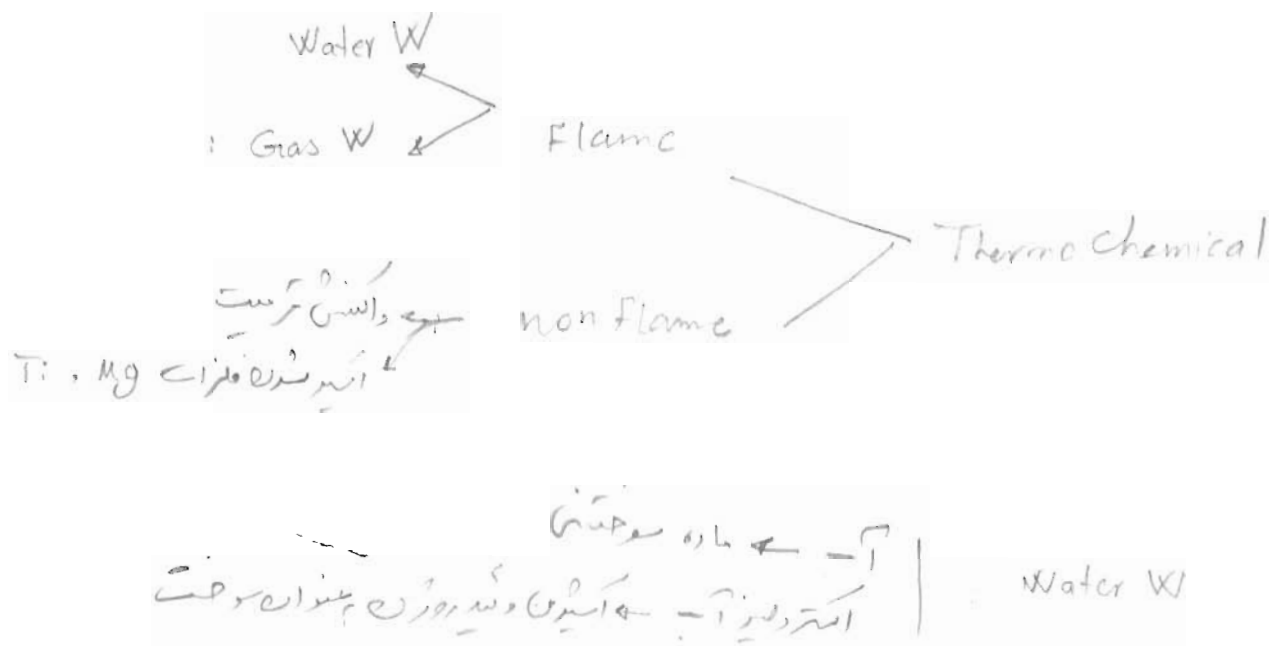 Water W
: Gas W
Flame
Thermo Chemical
non flame
واکنش ترمیت
Ti , Mg اکسید شدن فلزات
آب ← ماده سوختنی
Water W
الکترولیز آب ← اکسیژن و هیدروژن به عنوان سوخت